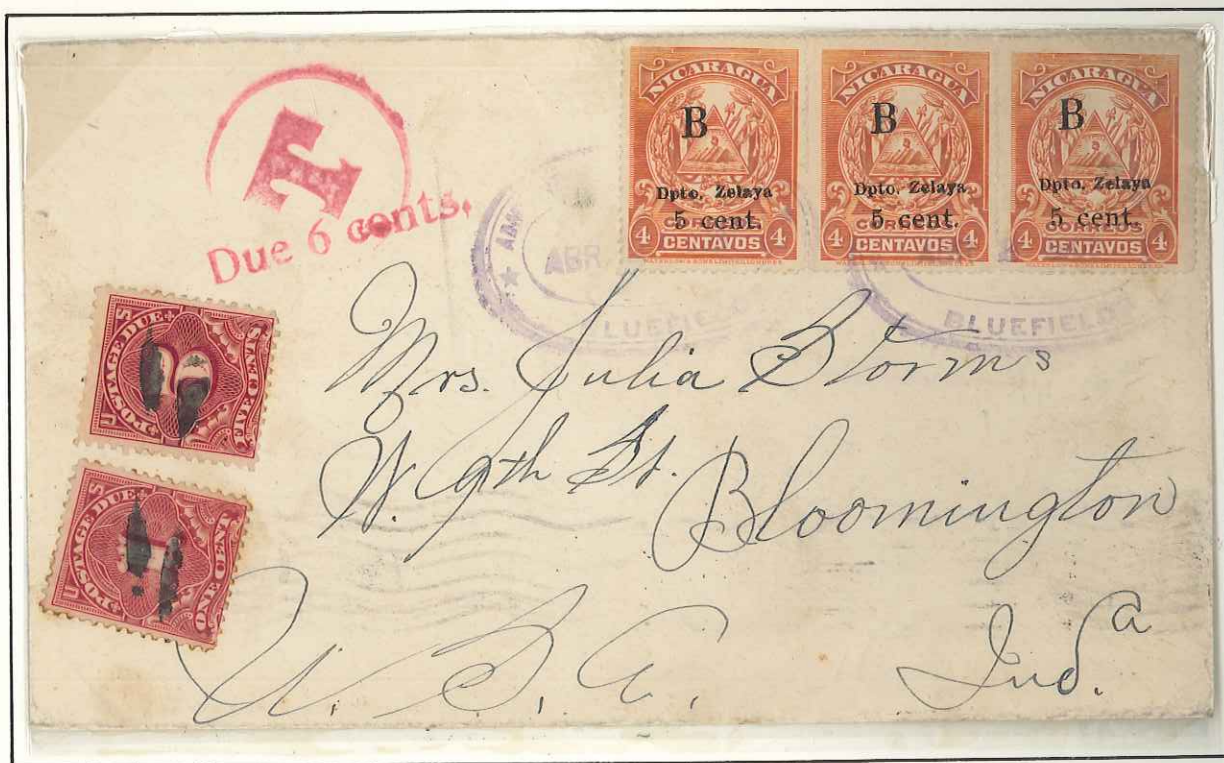 NICARAGUA
B
Dpto. Zelaya
5 cent.
CORREOS
4 CENTAVOS 4
NICARAGUA
B
Dpto. Zelaya
5 cent.
CORREOS
4 CENTAVOS 4
NICARAGUA
B
Dpto. Zelaya
5 cent.
CORREOS
4 CENTAVOS 4
T
Due 6 cents.
ABR
LUEFIE
BLUEFIELD
POSTAGE DUE
FIVE CENTS
5
POSTAGE DUE
ONE CENT
1
Mrs. Julia Storms
W. 9th St.
Bloomington
Ind.a
U. S. A.